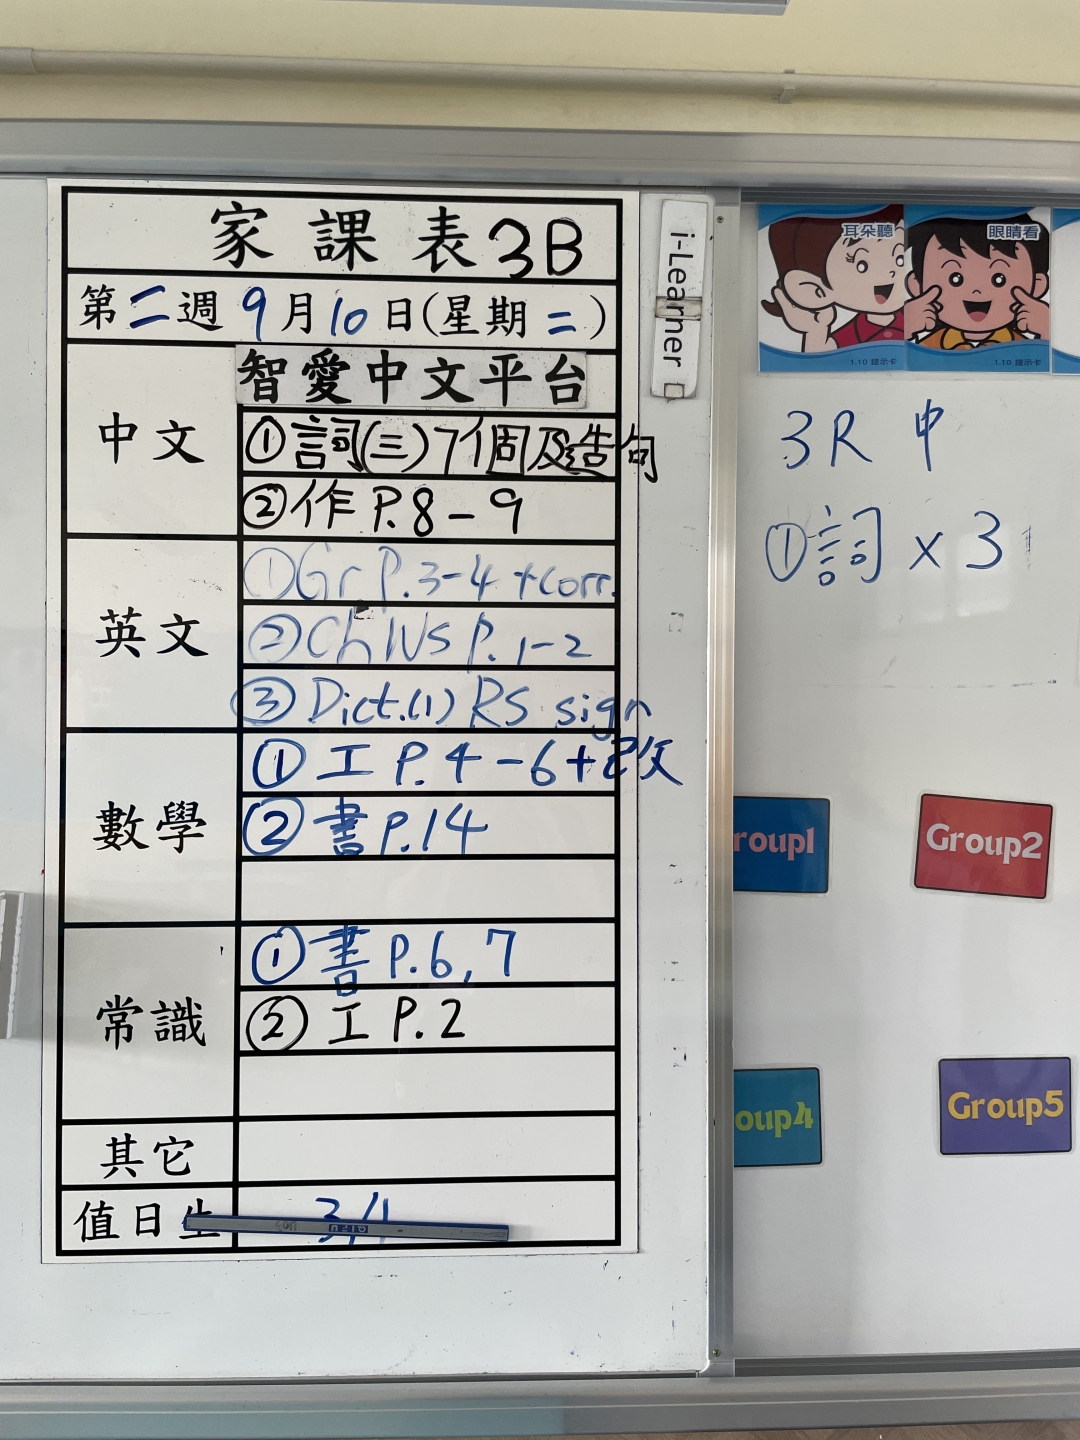 家課表 3B
第二週 9月10日(星期二)
中文
智愛中文平台
①詞(三)7個及造句
②作 P.8-9
英文
①Gr P.3-4 +corr.
②Ch WS P.1-2
③Dict.(1) RS sign
數學
①工 P.4-6+改
②書 P.14
常識
①書 P.6,7
②工 P.2
其它
值日生
i-Learner
耳朵聽
1.10 提示卡
眼睛看
1.10 提示卡
3R 中
①詞 x 3
roup1
Group2
oup4
Group5